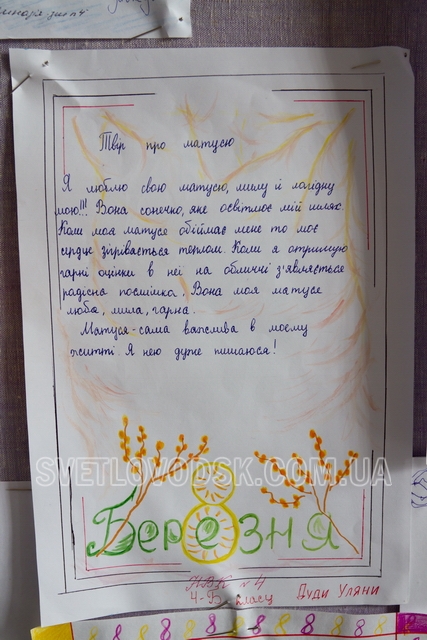 Твір про матусю
Я люблю свою матусю, милу й лагідну
мою!!! Вона сонечко, яке освітлює мій шлях.
Коли моя матуся обіймає мене то моє
сердце зігрівається теплом. Коли я отримую
гарні оцінки в неї на обличчі з'являється
радісна посмішка. Вона моя матуся
люба, мила, гарна.
Матуся - сама важлива в моєму
житті. Я нею дуже пишаюся!
SVETLOVODSK.COM.UA
8
Березня
НВК №4
4-Б класу Дуди Уляни
8 8 8 8 8 8 8 8